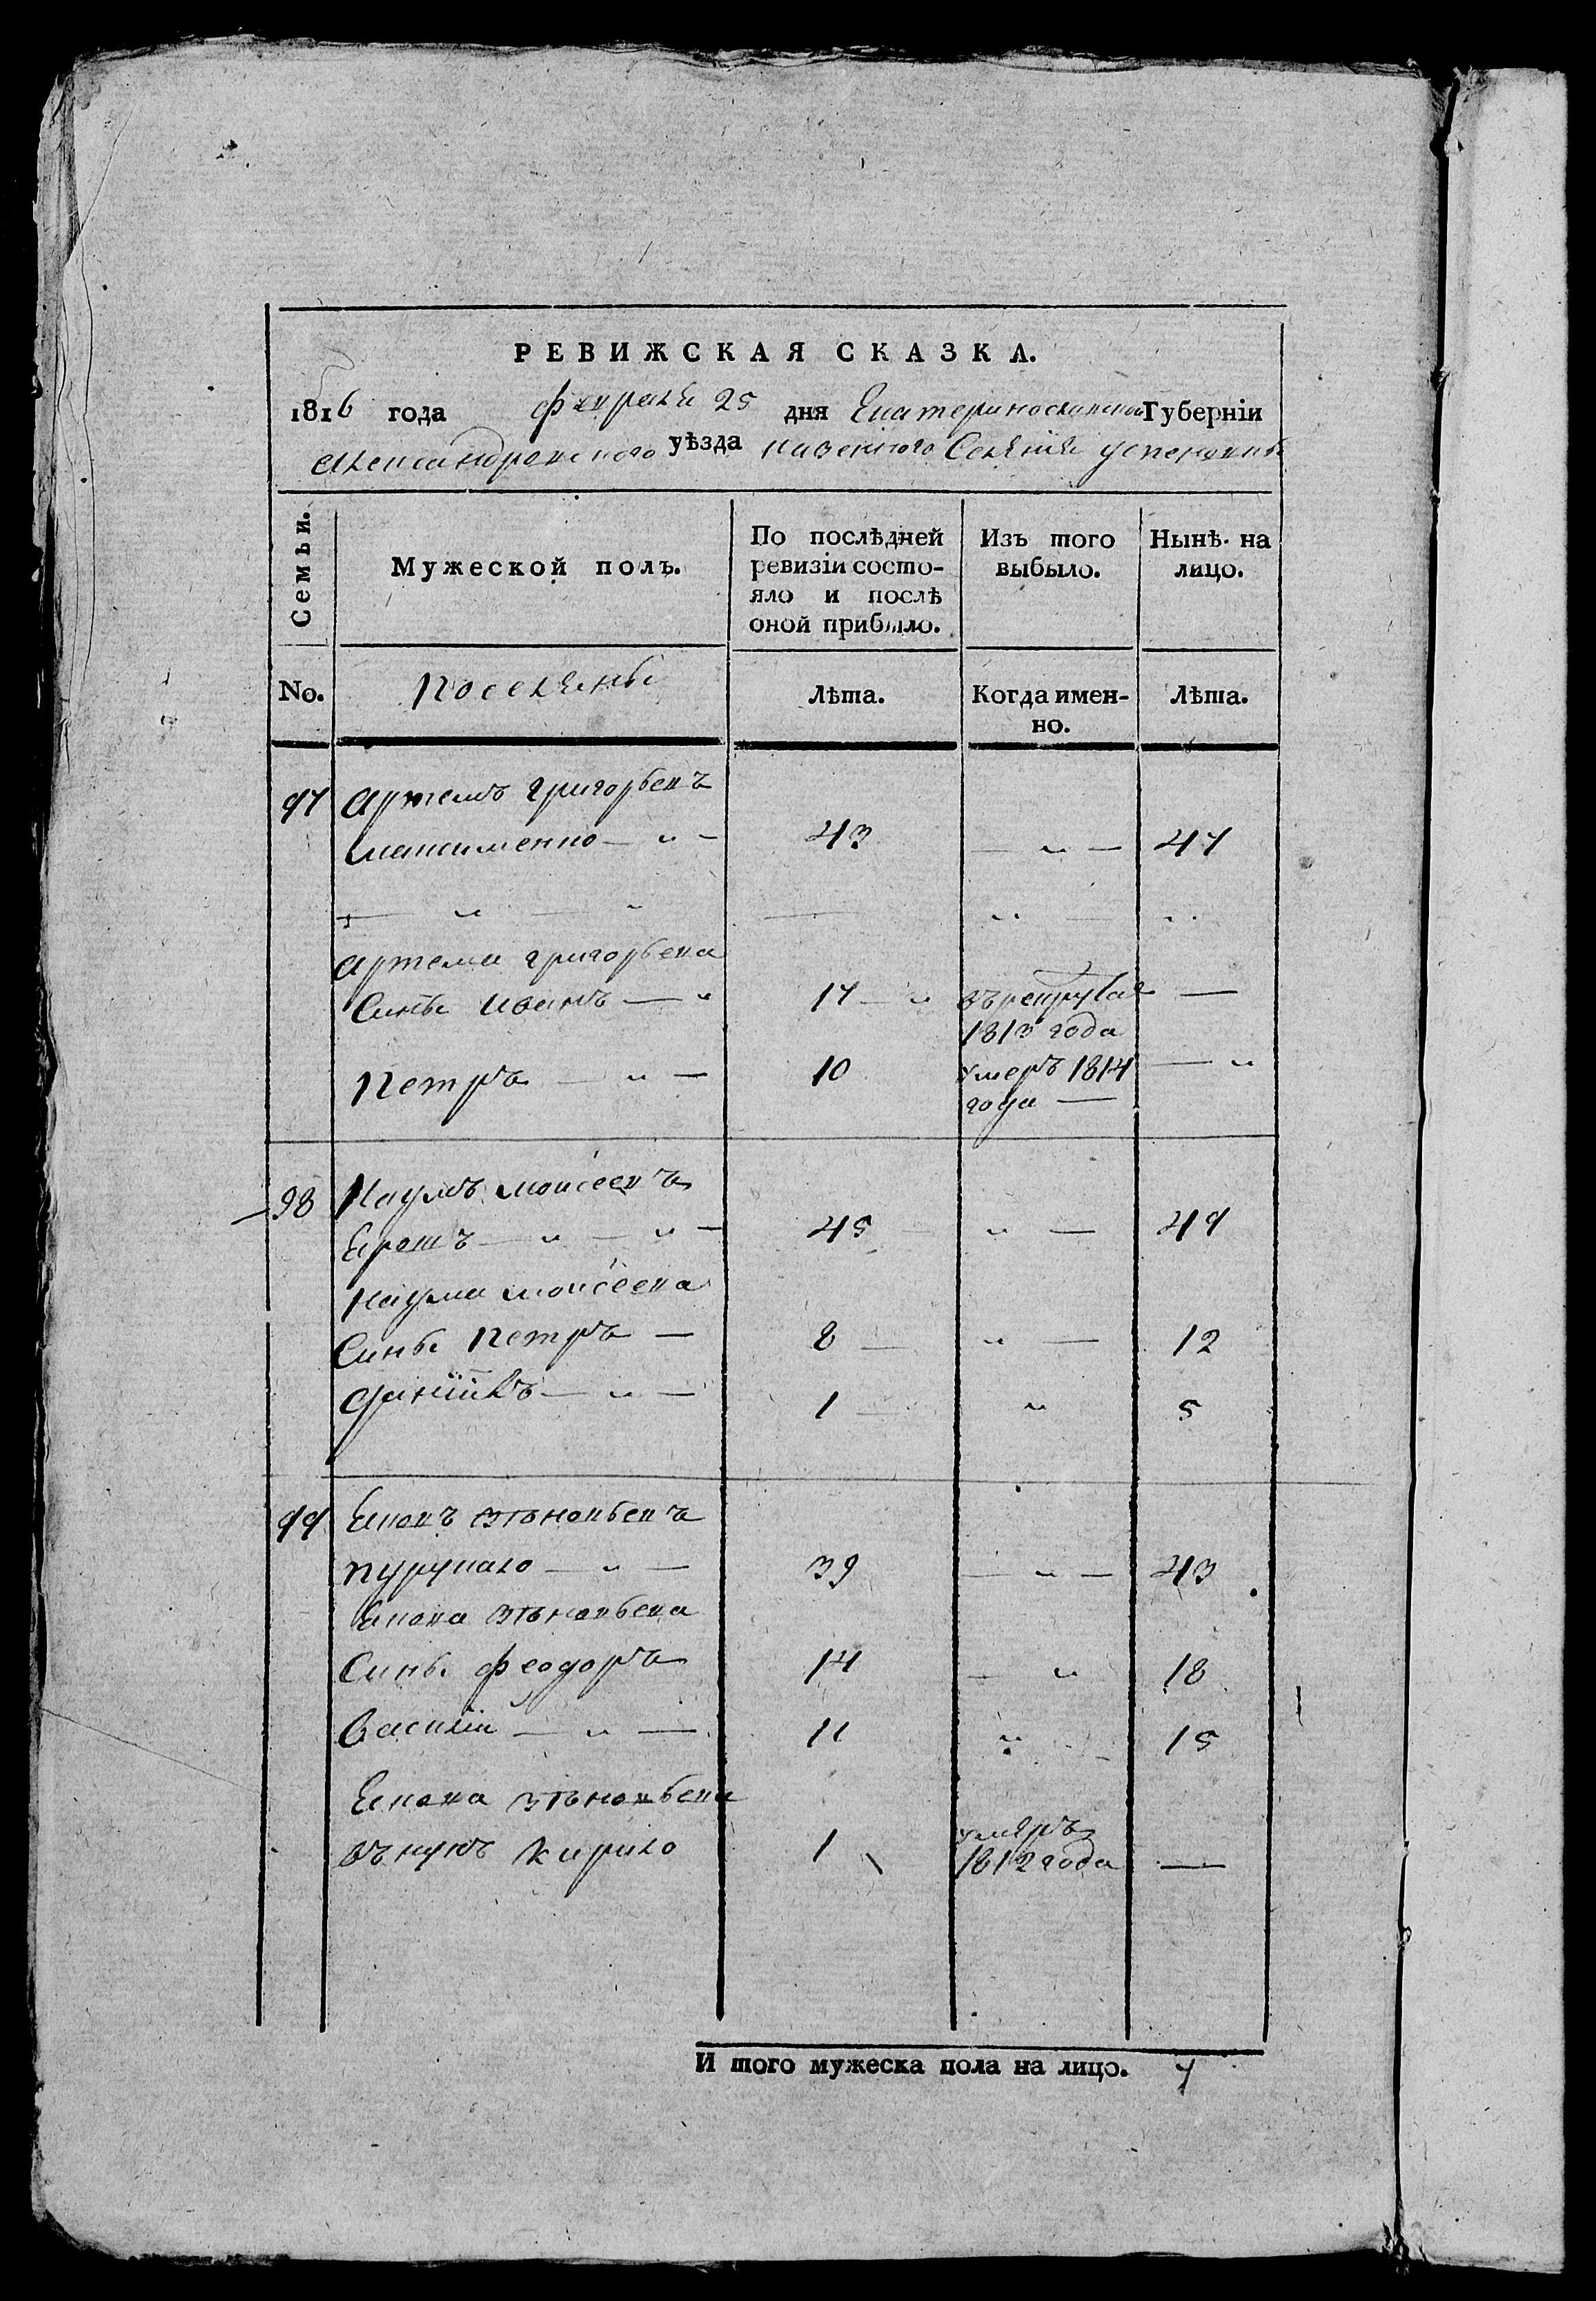 РЕВИЖСКАЯ СКАЗКА.
1816 года февраля 25 дня Екатеринославской Губерніи
Александровского уѣзда казенного Селения успеновки
Семьи.
Мужеской полъ.
По послѣдней ревизіи состояло и послѣ оной прибыло.
Изъ того выбыло.
Нынѣ на лицо.
No.
поселяны
Лѣта.
Когда именно.
Лѣта.
97 Артемъ григорьевъ
максименко — „ — 43 — „ — 47
Артема григорьева
Сины иванъ — „ 17 — „ въ рекруты —
1813 года
Петръ — „ — 10 умеръ 1814 — „
года —
98 Наумъ моисеевъ
— „ — „ — 45 „ — 49
Наума моисеева
Сины Петръ — 8 — „ — 12
даніилъ — „ — 1 — „ 5
99 Яковъ
— „ — 39 — „ — 43
Якова
Сины феодоръ 14 — „ 18
Василій — „ — 11 „ 15
Якова
внукъ Кирило 1 умеръ
1812 года —
И того мужеска пола на лицо. 7